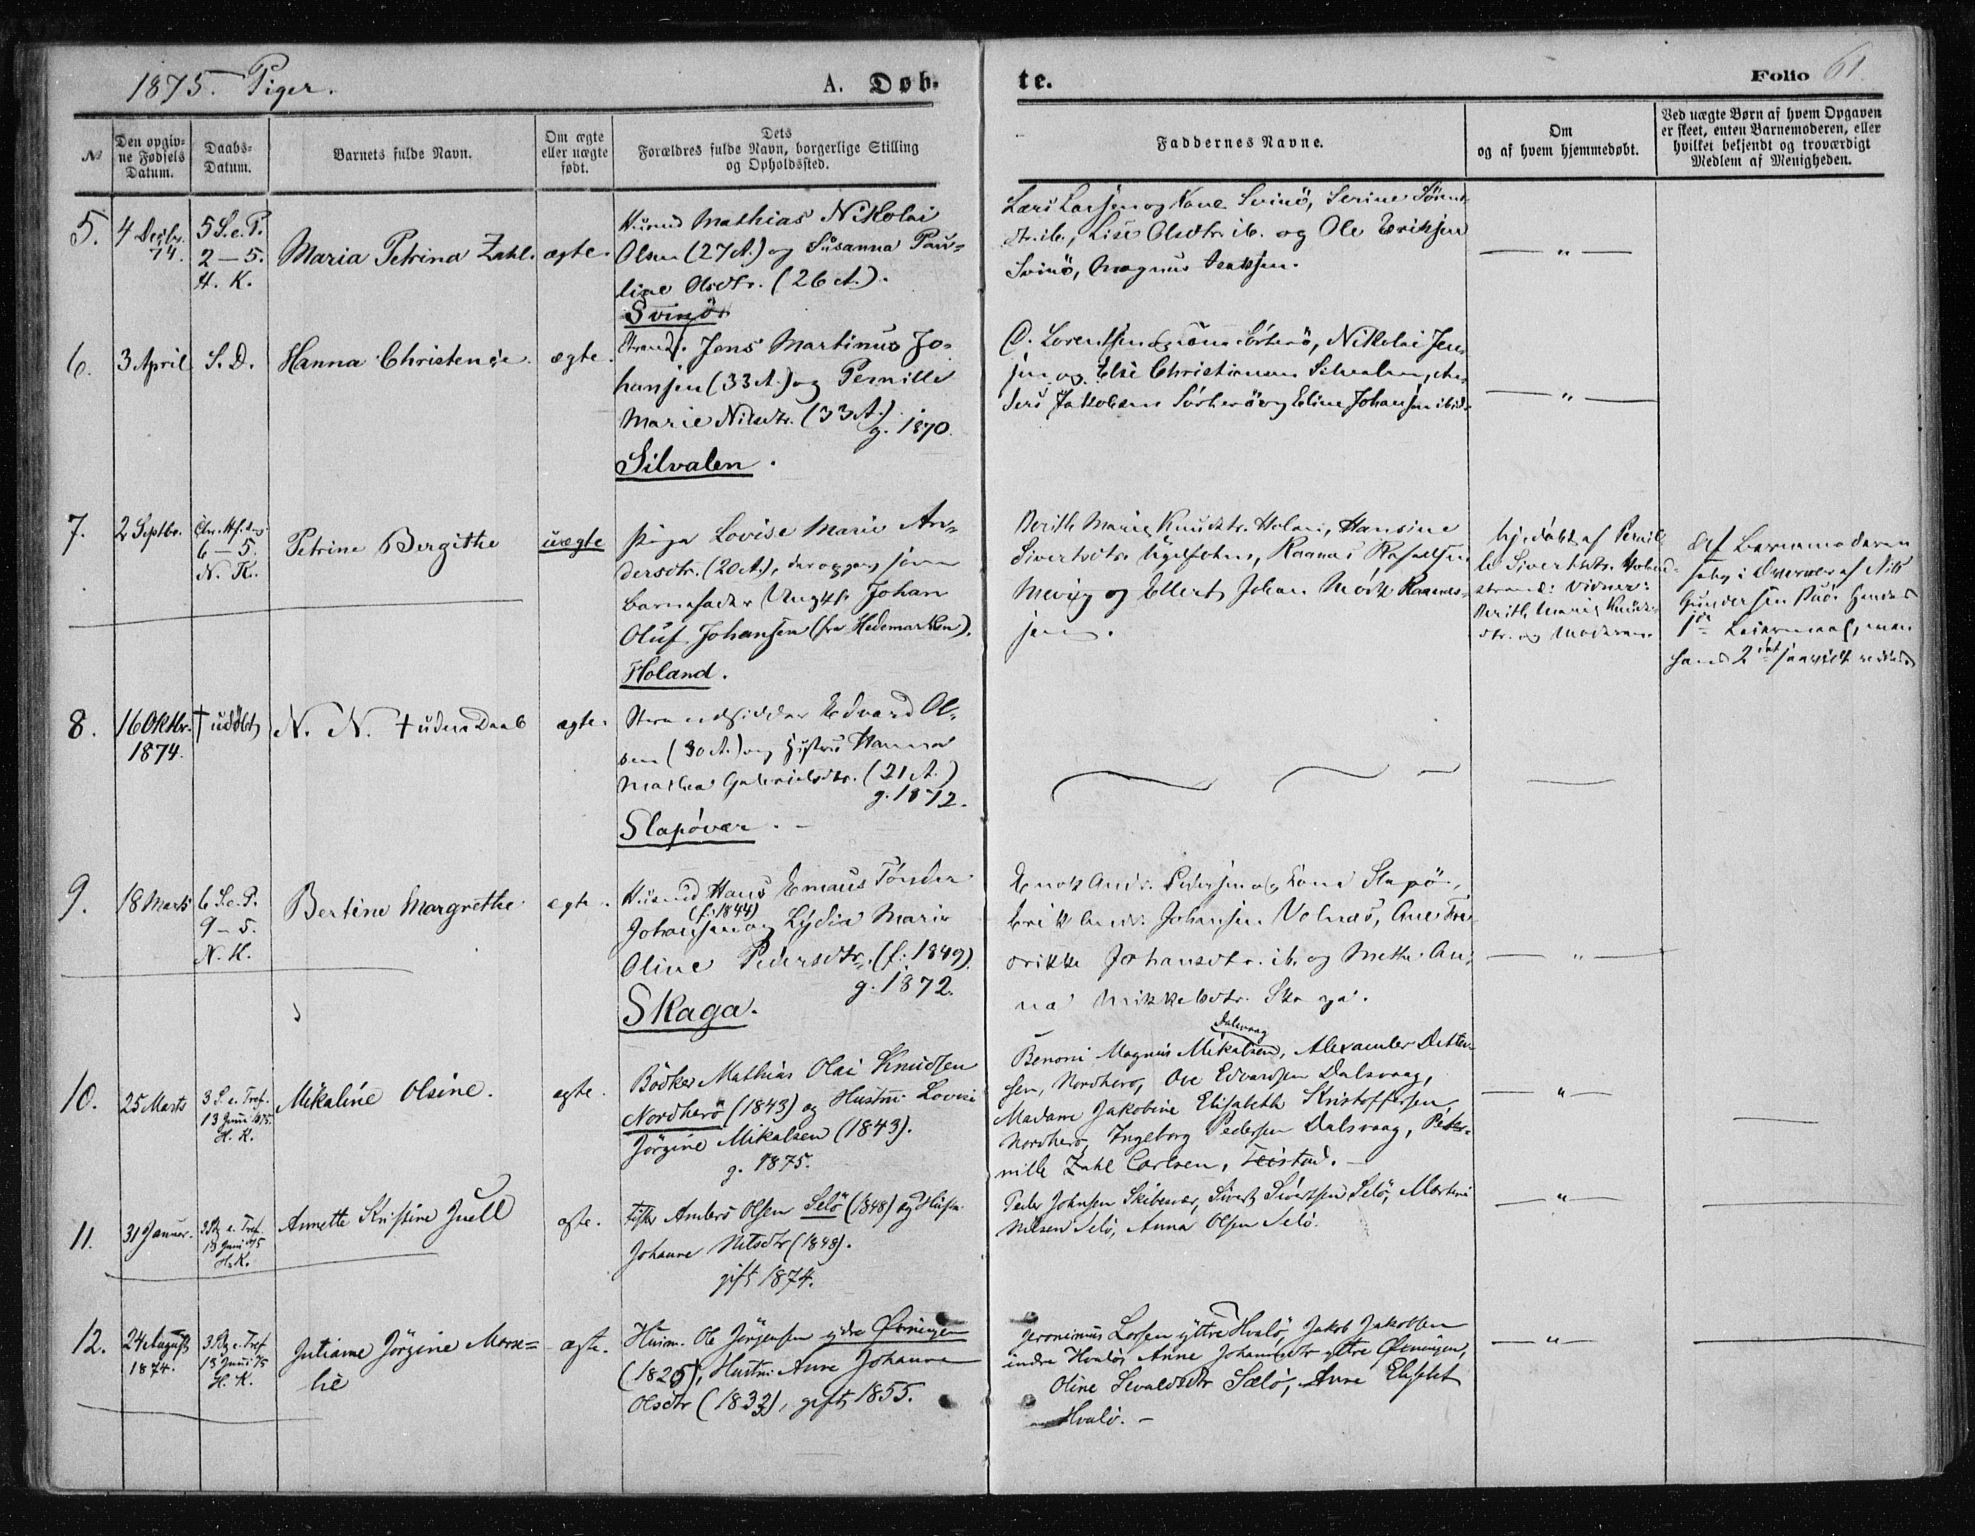 1875. Piger.
A. Døb-
te.
Folio 61.
№
Den opgiv-
ne Fødsels
Datum.
Daabs-
Datum.
Barnets fulde Navn.
Om ægte
eller uægte
født.
Dets
Forældres fulde Navn, borgerlige Stilling
og Opholdssted.
Faddernes Navne.
Om
og af hvem hjemmedøbt.
Ved uægte Børn af hvem Opgaven
er skeet, enten Barnemoderen, eller
hvilket bekjendt og troværdigt
Medlem af Menigheden.
5.
4 Decbr.
74.
5 S. e. P.
2 — 5.
H. K.
Maria Petrina Zahl.
ægte.
Husmd Mathias Nikolai
Olsen (27 A.) og Susanna Pau-
line Olsdtr. (26 A.).
Svinö
Lars Larsen og Kone Svinö, Serine Sörens-
dtr. ib., Lise Olsdtr. ib. og Ole Eriksen
Svinö, Magnus
— „ —
6.
3 April
S. D.
Hanna Christense
ægte.
Strands. Jens Martinus Jo-
hansen (33 A.) og Pernille
Marie Nilsdtr. (33 A.).
g. 1870.
Silvalen.
Lorentsen Nikolai Jen-
sen og Else Christiansen Silvalen, An-
ders Jakobsen Sörherö og Eline Johansen ibid.
— „ —
7.
2 Septbr.
6 — 5.
N. K.
Petrine Bergithe
uægte
Pige Lovise Marie An-
dersdtr. (20 A.), der opgav som
Barnefader Ungk. Johan
Oluf Johansen (fra Hedemarken).
Holand.
Berith Marie Knudsdtr. Holan, Hansine
Sivertsdtr. Raanas
og Ellert Johan Raanes-
sen.
hjdöbt af Pernil-
le Sivertsdtr.
Vidner:
Berith Marie Knuds-
dtr. og Moderen.
Af Barnemoderen
selv i Overvær af Nils
Gundersen
1ste Leiermaal, men
hans 2det saavidt vides.
8.
16 Oktbr.
1874.
† udöbt
N. N. † uden Daab
ægte.
Strandsidder Edvard Ol-
sen (30 A.) og Hustru Hanna
Mathea Gabrielsdtr. (21 A.)
g. 1872.
Slapövær.
9.
18 Marts
6 S. e. P.
9 — 5.
N. K.
Bertine Margrethe
ægte.
Husmd Hans Emaus Tönder
(f. 1844)
Johansen og Lydia Marie
Oline Pedersdtr. (f. 1849).
g. 1872.
Skaga.
Enok Andr. Pedersen og Kone Slapö,
Erik Andr. Johansen Volnæs, Ane Fre-
drikke Johansdtr. ib. og Mette An-
na Mikkelsdtr. Skaga.
— „ —
10.
25 Marts
3 S. e. Tref.
13 Juni 1875.
H. K.
Mikaline Olsine.
ægte.
Bödker Mathias Olai Knudsen
Nordherö (1843) og Hustru Lovise
Jörgine Mikalsen (1843).
g. 1875.
Dalsvaag
Benoni Magnus Mikalsen, Alexander Detlev-
sen, Nordherö, Ove Edvardsen Dalsvaag,
Madame Jakobine Elisabeth Kristoffersen
Nordherö, Ingeborg Pedersen Dalsvaag, Peter-
nille Zahl Carlsen, Teistad. —
— „ —
11.
31 Januar.
3 S. e. Tref.
13 Juni 75
H. K.
Annette Kristine Juell
ægte.
Fisker Anders Olsen Selö (1848) og Hustru
Johanne Nilsdtr (1848).
gift 1874.
Peder Johnsen Skibsvær, Sivert Sivertsen Selö, Martine
Nilsen Selö, Anna Olsen Selö.
— „ —
12.
24 August
1874.
3 S. e. Tref
13 Juni 75
H. K.
Juliane Jörgine Marse-
lie
ægte.
Husm. Ole Jörgensen ydre Öxningen
(1825), Hustru Anne Johanna
Olsdtr (1833), gift 1855.
Jeronimus Larsen yttre Hvalö, Jakob Jakobsen
indre Hvalö, Anne Johannsdtr yttre Öxningen,
Oline Sivaldsdtr Selö, Anne Elisabet
Hvalö. —
— „ —